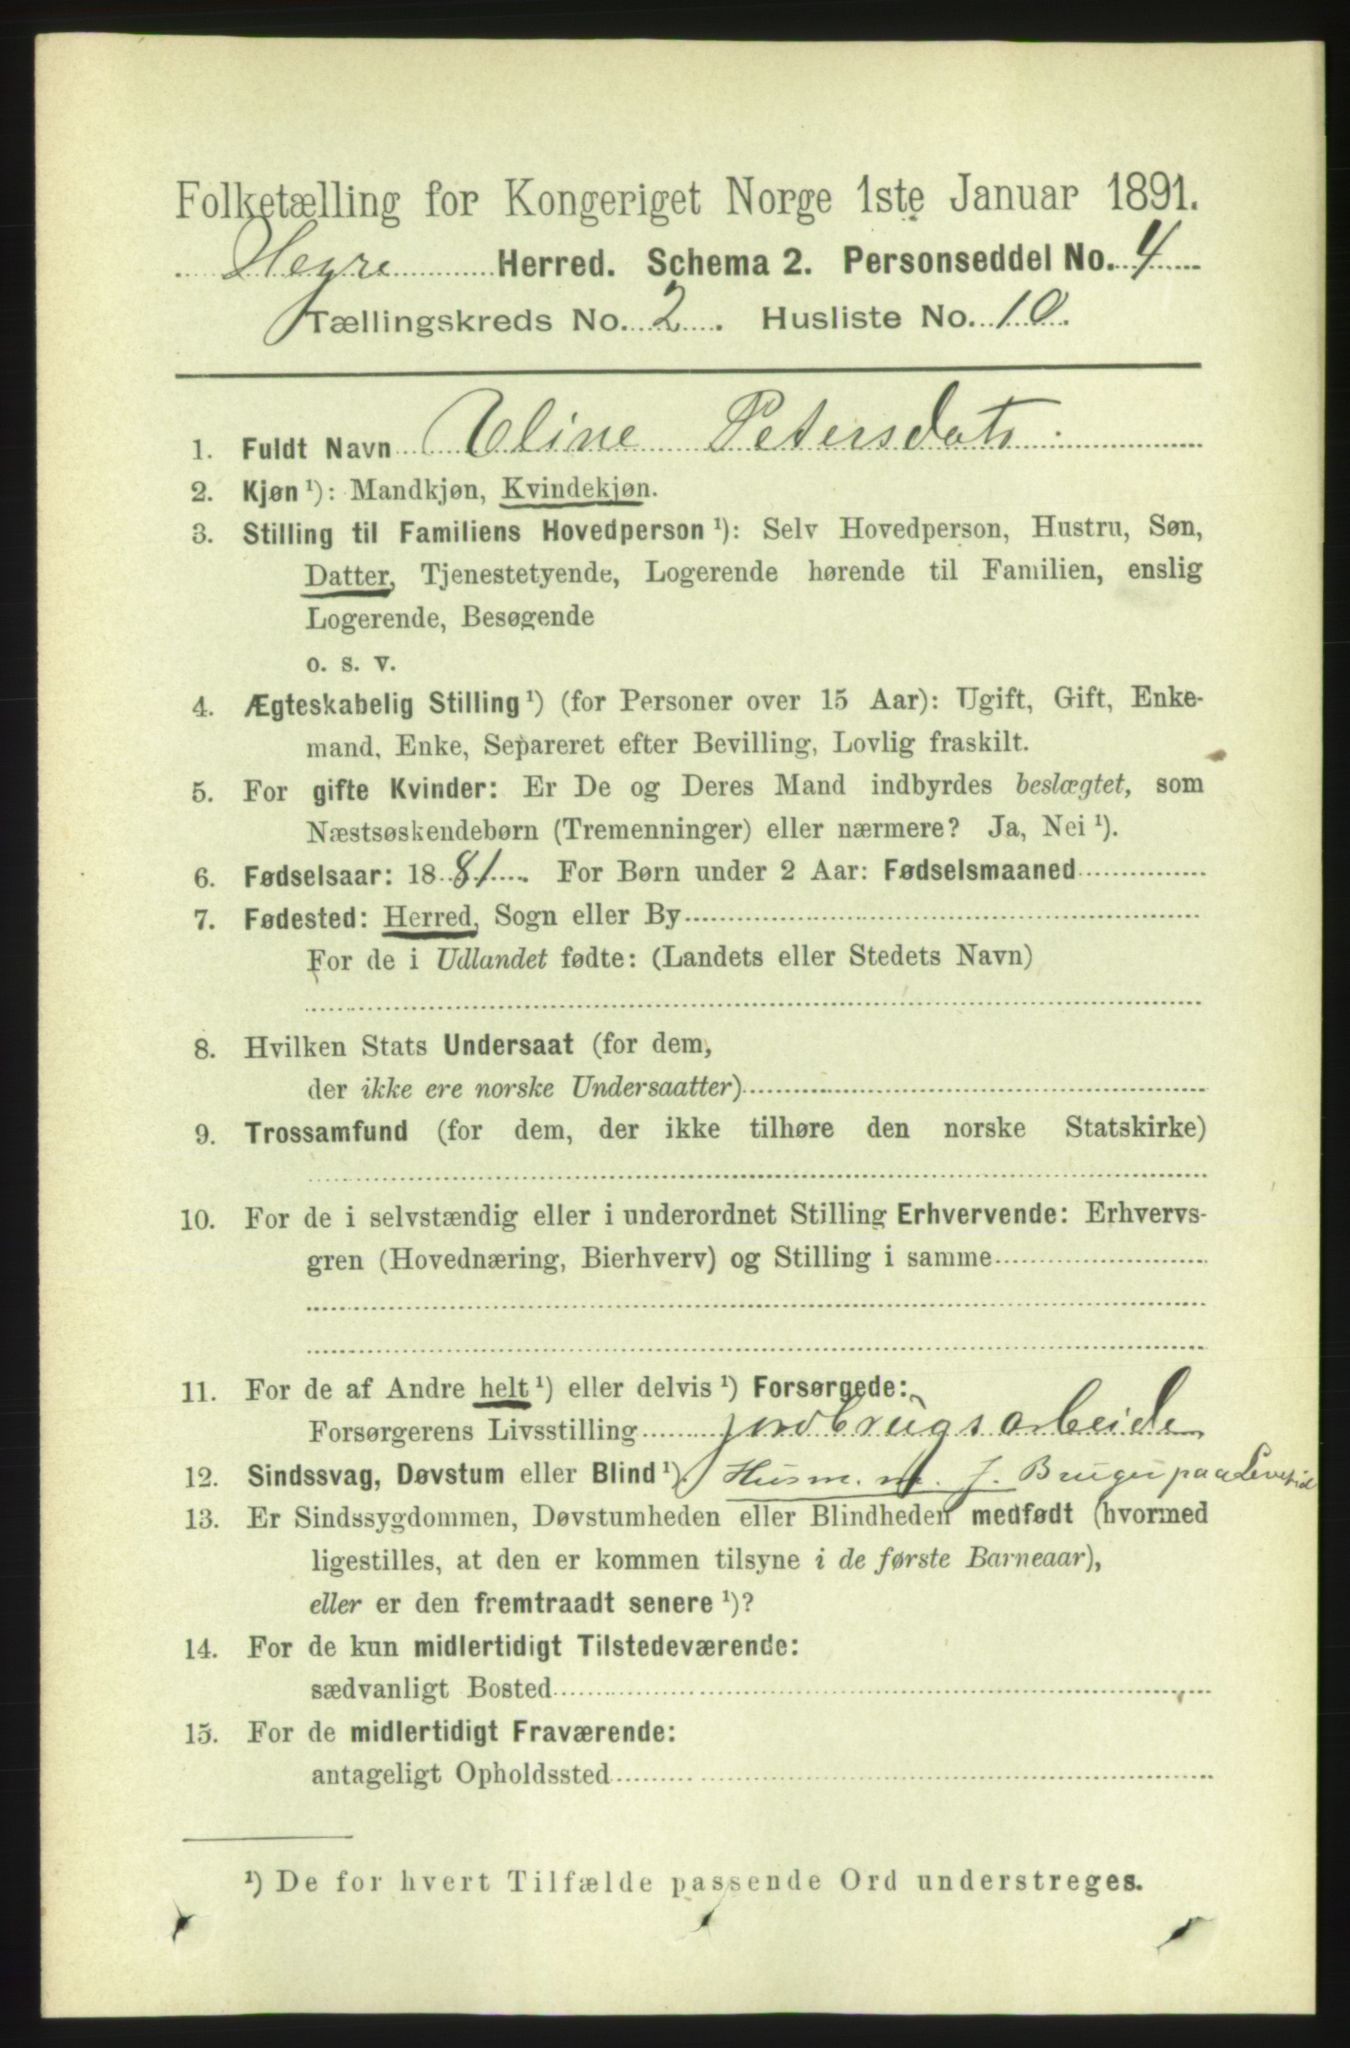 Folketælling for Kongeriget Norge 1ste Januar 1891.
Hegre Herred. Schema 2. Personseddel No. 4
Tællingskreds No. 2. Husliste No. 10.
1. Fuldt Navn Eline Petersdatr.
2. Kjøn ¹): Mandkjøn, Kvindekjøn.
3. Stilling til Familiens Hovedperson ¹): Selv Hovedperson, Hustru, Søn,
Datter, Tjenestetyende, Logerende hørende til Familien, enslig
Logerende, Besøgende
o. s. v.
4. Ægteskabelig Stilling ¹) (for Personer over 15 Aar): Ugift, Gift, Enke-
mand, Enke, Separeret efter Bevilling, Lovlig fraskilt.
5. For gifte Kvinder: Er De og Deres Mand indbyrdes beslægtet, som
Næstsøskendebørn (Tremenninger) eller nærmere? Ja, Nei ¹).
6. Fødselsaar: 1881. For Børn under 2 Aar: Fødselsmaaned
7. Fødested: Herred, Sogn eller By
For de i Udlandet fødte: (Landets eller Stedets Navn)
8. Hvilken Stats Undersaat (for dem,
der ikke ere norske Undersaatter)
9. Trossamfund (for dem, der ikke tilhøre den norske Statskirke)
10. For de i selvstændig eller i underordnet Stilling Erhvervende: Erhvervs-
gren (Hovednæring, Bierhverv) og Stilling i samme
11. For de af Andre helt ¹) eller delvis ¹) Forsørgede:
Forsørgerens Livsstilling jordbrugsarbeide
12. Sindssvag, Døvstum eller Blind ¹). Husm. m. J. Bruger paa Levetid
13. Er Sindssygdommen, Døvstumheden eller Blindheden medfødt (hvormed
ligestilles, at den er kommen tilsyne i de første Barneaar),
eller er den fremtraadt senere ¹)?
14. For de kun midlertidigt Tilstedeværende:
sædvanligt Bosted
15. For de midlertidigt Fraværende:
antageligt Opholdssted
¹) De for hvert Tilfælde passende Ord understreges.